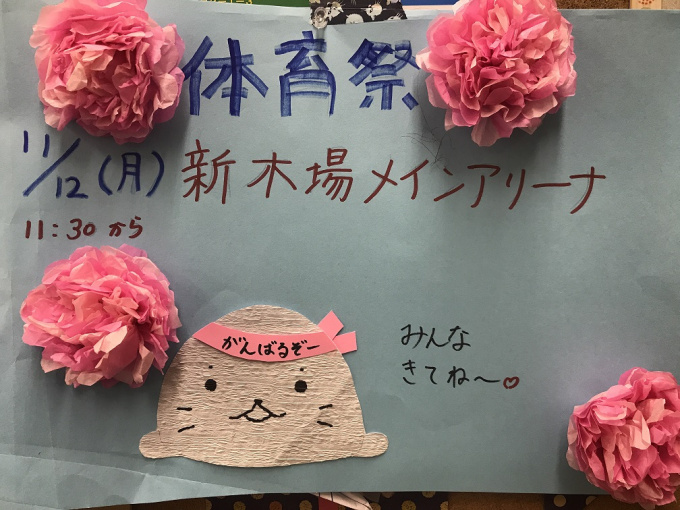 体育祭
11/12(月) 新木場メインアリーナ
11:30から
がんばるぞー
みんな
きてね〜♡